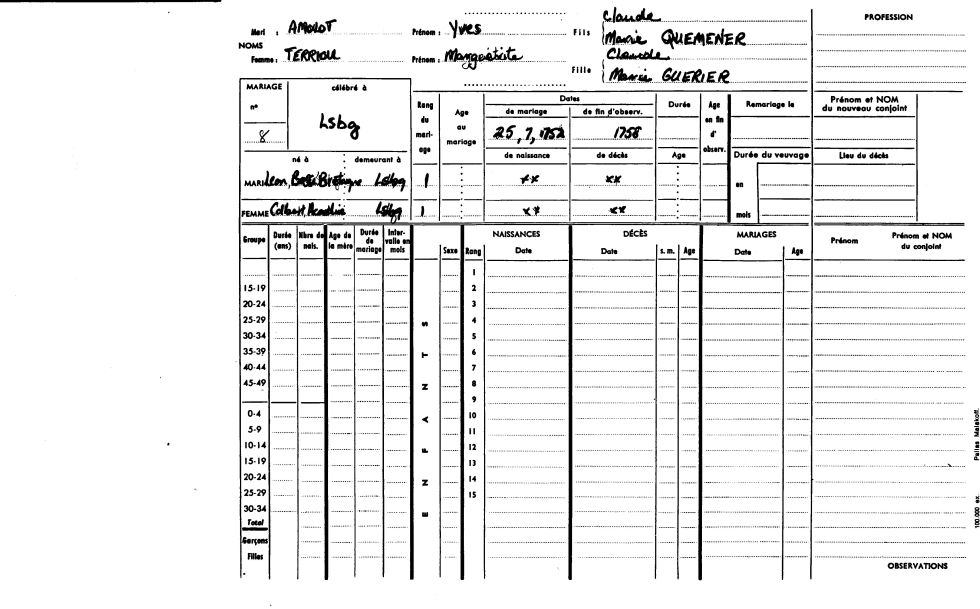 Claude
PROFESSION
Mari : AMOROT Prénom : Yves Fils Marie QUEMENER
NOMS
Claude
Femme : TERRIOU Prénom : Fille Marie GUERIER
MARIAGE célébré à
n° 8 Lsbg
Rang du mari- age
Age au mariage
Dates
de mariage de fin d'observ.
25, 7, 1752 1758
de naissance de décès
Durée
Age
Age en fin d' observ.
Remariage le
Durée du veuvage
en
mois
Prénom et NOM du nouveau conjoint
Lieu du décès
né à demeurant à
MARI Leon, Lsbg 1 xx xx
FEMME Lsbg 1 xx xx
NAISSANCES DÉCÈS MARIAGES
Groupe Durée (ans) Nbre de nais. Age de la mère Durée de mariage Inter- valle en mois Sexe Rang Date Date s. m. Age Date Age Prénom Prénom et NOM du conjoint
ENFANTS
1
15-19 2
20-24 3
25-29 4
30-34 5
35-39 6
40-44 7
45-49 8
9
0-4 10
5-9 11
10-14 12
15-19 13
20-24 14
25-29 15
30-34
Total
Garçons
Filles
OBSERVATIONS
100.000 ex. Malakoff.